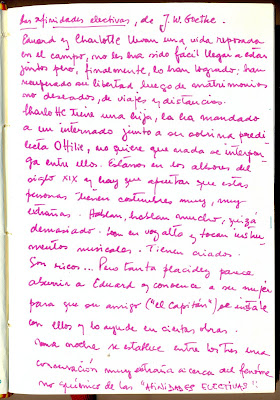 Las afinidades electivas, de J.W. Goethe.
Eduard y Charlotte llevan una vida reposada
en el campo, no les ha sido fácil llegar a estar
juntos pero, finalmente, lo han logrado: han
recuperado su libertad luego de matrimonios
no deseados, de viajes y distancias.
Charlotte tiene una hija, la ha mandado
a un internado junto a su sobrina predi
lecta Ottilie, no quiere que nada se interpon
ga entre ellos. Estamos en los albores del
siglo XIX y hay que apuntar que estas
personas tienen costumbres muy, muy
extrañas. Hablan, hablan mucho, quizá
demasiado. Leen en voz alta y tocan instru
mentos musicales. Tienen criados.
Son ricos... Pero tanta placidez parece
aburrir a Eduard y convence a su mujer
para que su amigo ("el Capitán") se instale
con ellos y lo ayude en ciertas obras.
Una noche se establece entre los tres una
conversación muy extraña acerca del fenóme
no químico de las "AFINIDADES ELECTIVAS":